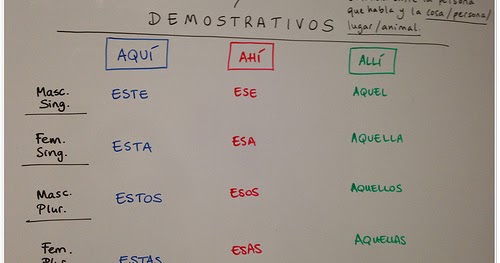 persona
que habla y la cosa/persona/
lugar/animal.
DEMOSTRATIVOS
AQUÍ AHÍ ALLÍ
Masc. Sing. ESTE ESE AQUEL
Fem. Sing. ESTA ESA AQUELLA
Masc. Plur. ESTOS ESOS AQUELLOS
Fem. Plur. ESTAS ESAS AQUELLAS